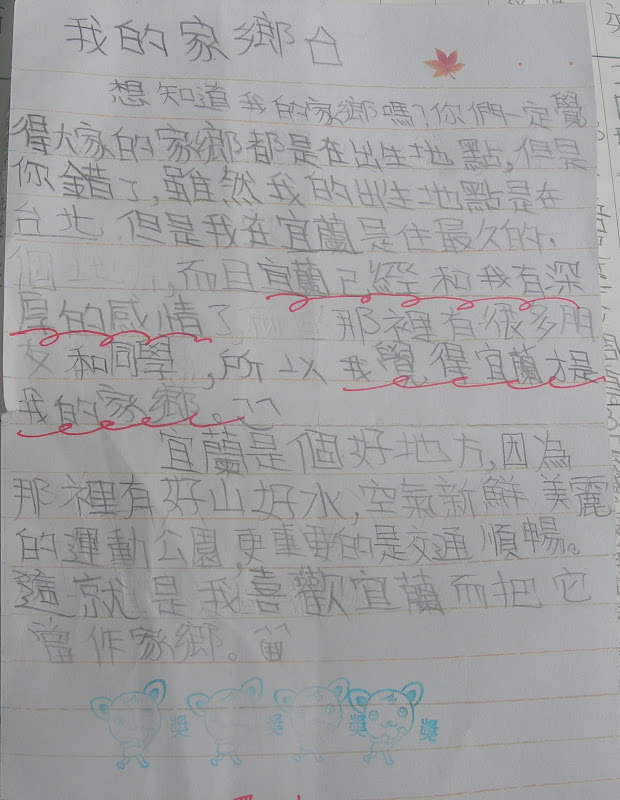 我的家鄉
想知道我的家鄉嗎?你們一定覺
得大家的家鄉都是在出生地點,但是
你錯了,雖然我的出生地點是在
台北 但是我在宜蘭是住最久的、
個地方,而且宜蘭已經和我有深
厚的感情了 那裡有很多朋
友和同學,所以我覺得宜蘭才是
我的家鄉。
宜蘭是個好地方,因為
那裡有好山好水,空氣新鮮 美麗
的運動公園,更重要的是交通順暢。
這就是我喜歡宜蘭而把它
當作家鄉。
獎 獎 獎 獎